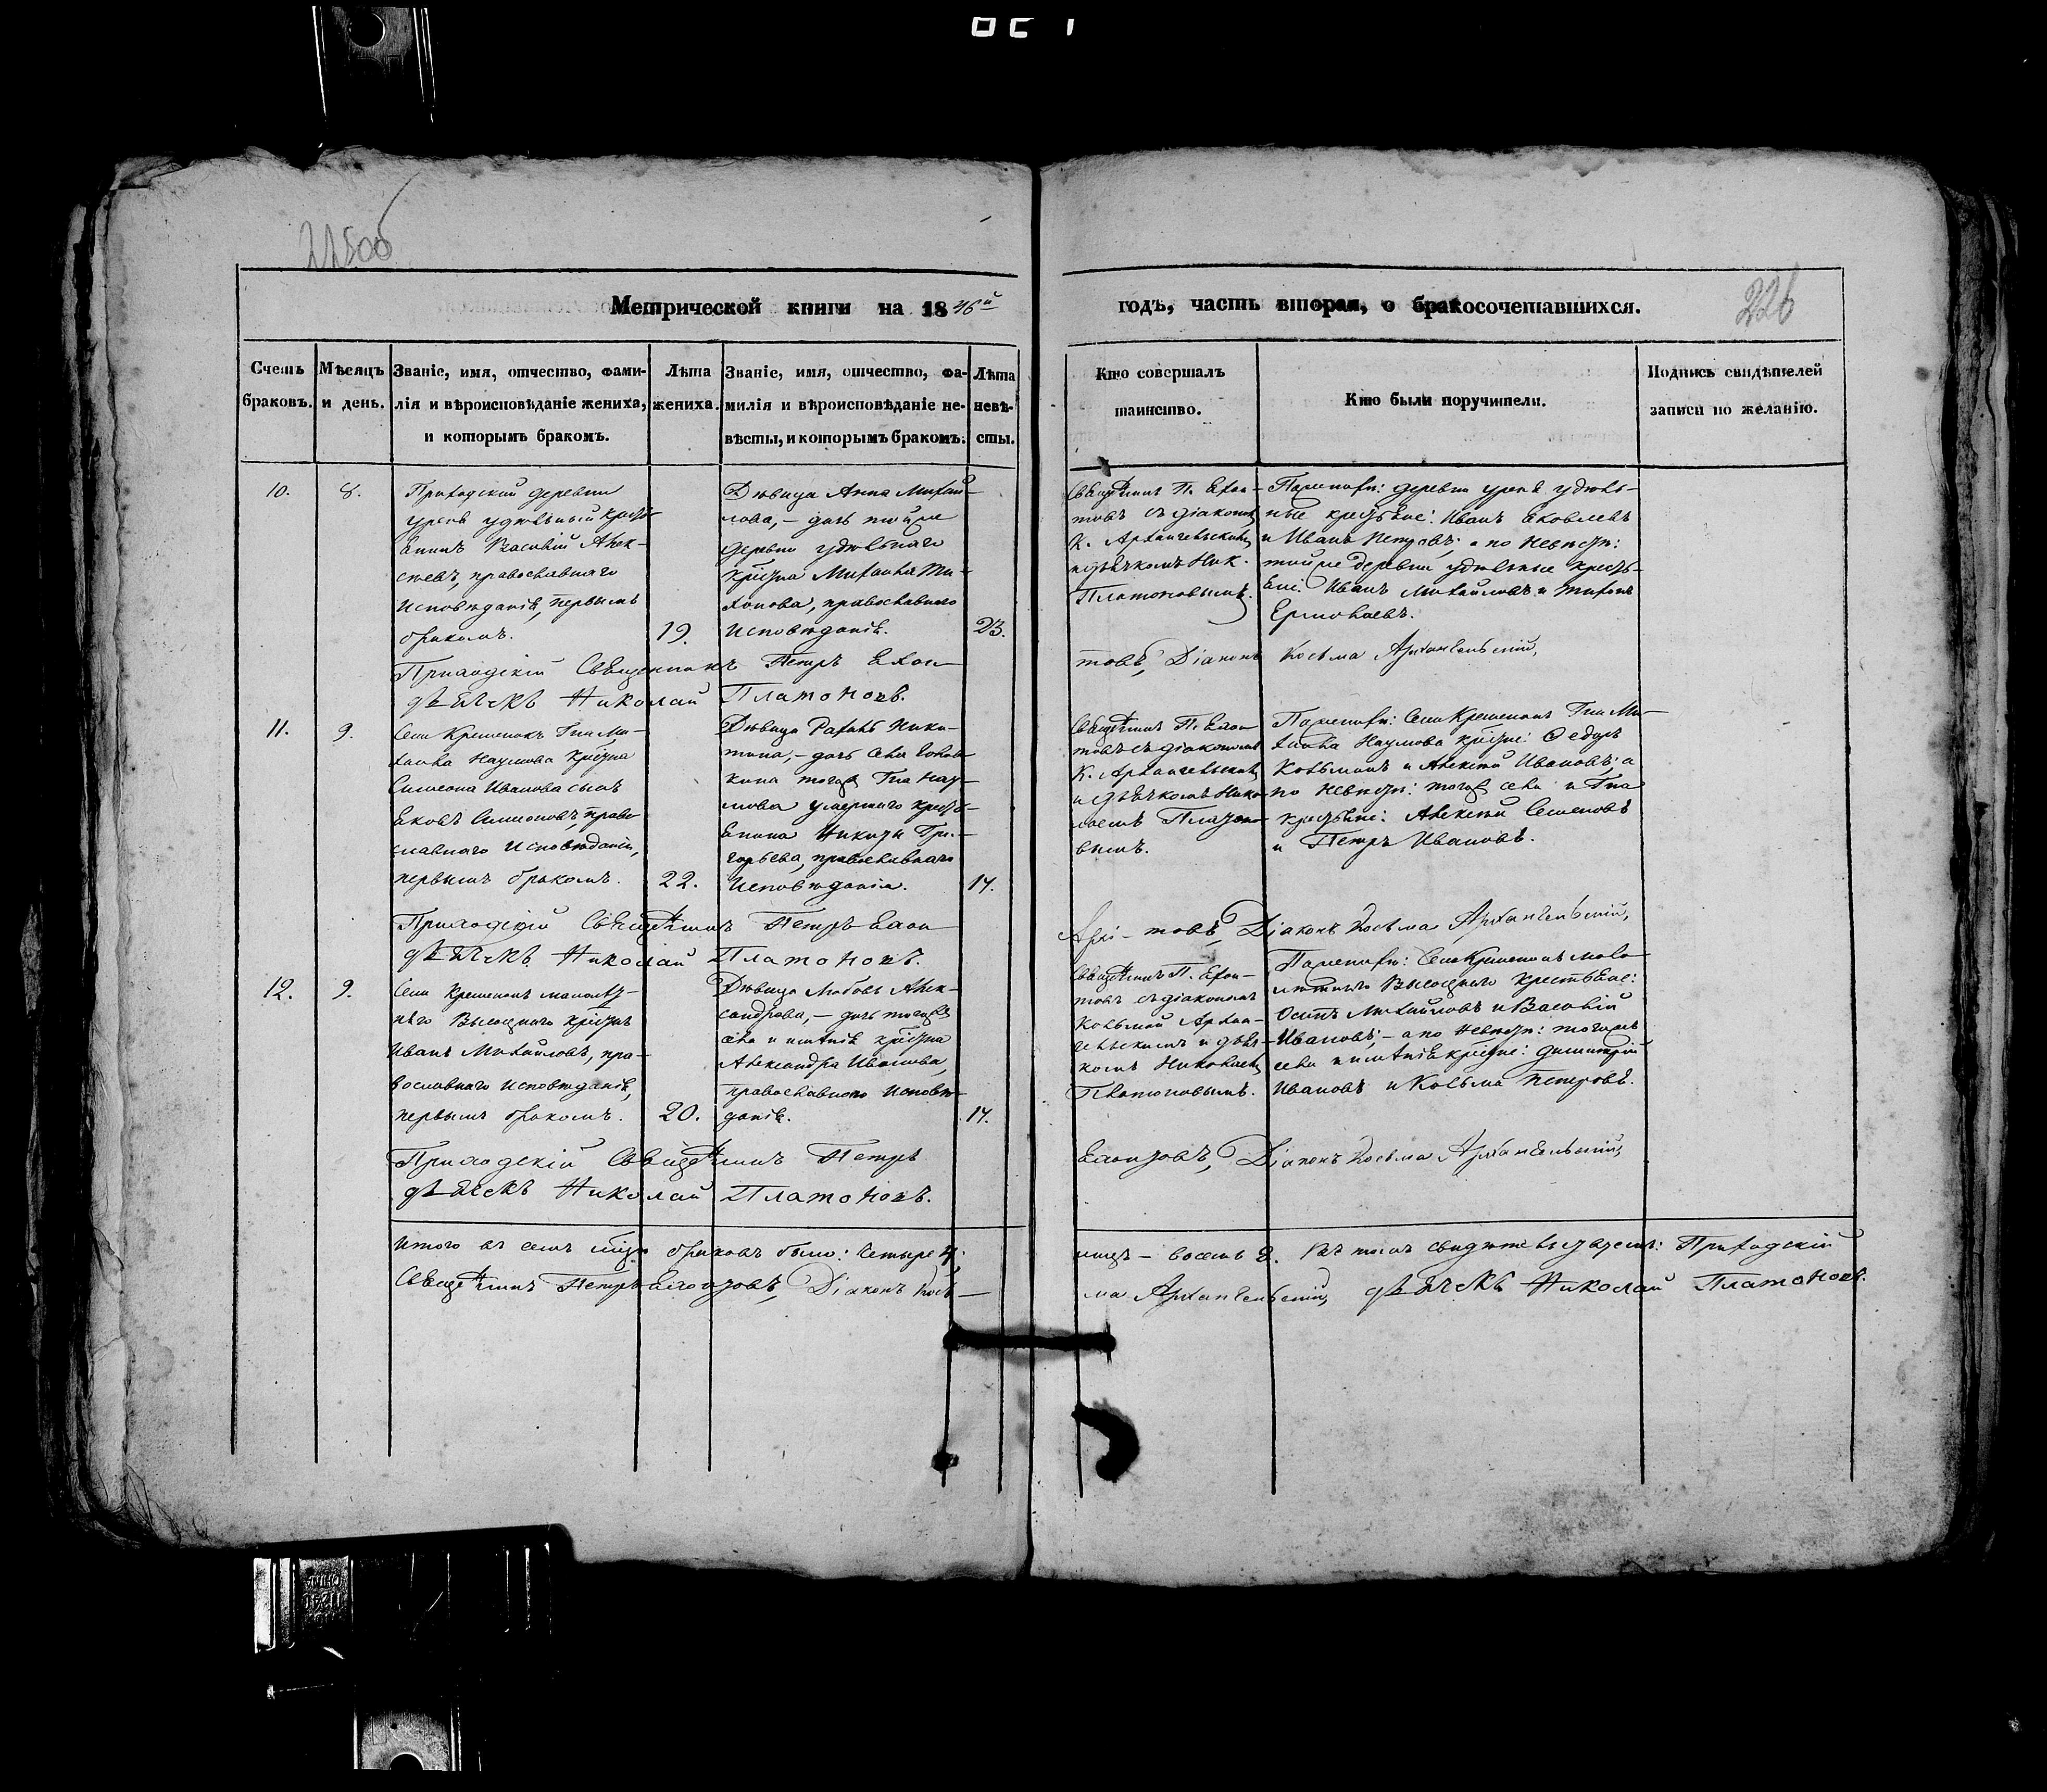 225об
226
Метрической книги на 1846й
годъ, часть вторая, о бракосочетавшихся.
Счетъ
браковъ.
Мѣсяцъ
и день.
Званіе, имя, отчество, фами-
лія и вѣроисповѣданіе жениха,
и которымъ бракомъ.
Лѣта
жениха.
Званіе, имя, отчество, фа-
милія и вѣроисповѣданіе не-
вѣсты, и которымъ бракомъ.
Лѣта
невѣ-
сты.
Кто совершалъ
таинство.
Кто были поручители.
Подпись свидѣтелей
записи по желанію.
10.
8.
Приходскій деревни
удѣльный кресть-
янинъ Василій Алек-
сѣевъ, православнаго
исповѣданія, первымъ
бракомъ.
19.
Дѣвица Анна Михай-
лова, – дочь той же
деревни удѣльнаго
Михаила Ти-
хонова, православнаго
исповѣданія.
23.
П. Ехон-
товъ съ діакономъ
К. Архангельскимъ
и дьячкомъ Ник.
Платоновымъ.
деревни удѣль-
ные Иванъ Яковлевъ
и Иванъ Петровъ; а по
той же деревни удѣльные кресть-
Иванъ Михайловъ и Тихонъ
Ермолаевъ.
Приходскій Священникъ Петръ Ехон-
товъ, Діаконъ Косьма Архангельскій,
дьячекъ Николай Платоновъ.
11.
9.
Села Кременокъ Г-на Ми-
хаила Наумова
Симеона Иванова сынъ
Яковъ Симионовъ, право-
славнаго исповѣданія,
первымъ бракомъ.
22.
Дѣвица Ники-
тина, – дочь села
Г-на Нау-
мова умершаго кресть-
янина Никиты Гри-
горьева, православнаго
исповѣданія.
17.
П. Ехон-
товъ съ діакономъ
К. Архангельскимъ
и дьячкомъ Нико-
лаемъ Платоно-
вымъ.
Села Кременокъ Г-на Ми-
хаила Наумова Ѳедоръ
Козьминъ и Алексѣй Ивановъ; а
по села и Г-на
Алексѣй Семеновъ
и Петръ Ивановъ.
Приходскій Петръ Ехон-
товъ, Діаконъ Косьма Архангельскій,
дьячекъ Николай Платоновъ.
12.
9.
Села Кременокъ малолѣт-
няго Высоцкаго
Иванъ Михайловъ, пра-
вославнаго исповѣданія,
первымъ бракомъ.
20.
Дѣвица Любовь Алек-
сандрова, – дочь
села и имѣнія
Александра Иванова,
православнаго исповѣ-
данія.
17.
П. Ехон-
товъ съ діакономъ
Козьмой Архан-
гельскимъ и дьяч-
комъ Николаемъ
Платоновымъ.
Села Кременокъ мало-
лѣтняго Высоцкаго
Осипъ Михайловъ и Василій
Ивановъ; – а по
села и имѣнія Димитрій
Ивановъ и Козьма Петровъ.
Приходскій Петръ
Ехонтовъ, Діаконъ Косьма Архангельскій,
дьячекъ Николай Платоновъ.
Итого въ семъ браковъ было: четыре 4;
лицъ – восемь 8. Въ томъ свидѣтельствуемъ: Приходскій
Петръ Ехонтовъ, Діаконъ Кось-
ма Архангельскій, дьячекъ Николай Платоновъ.